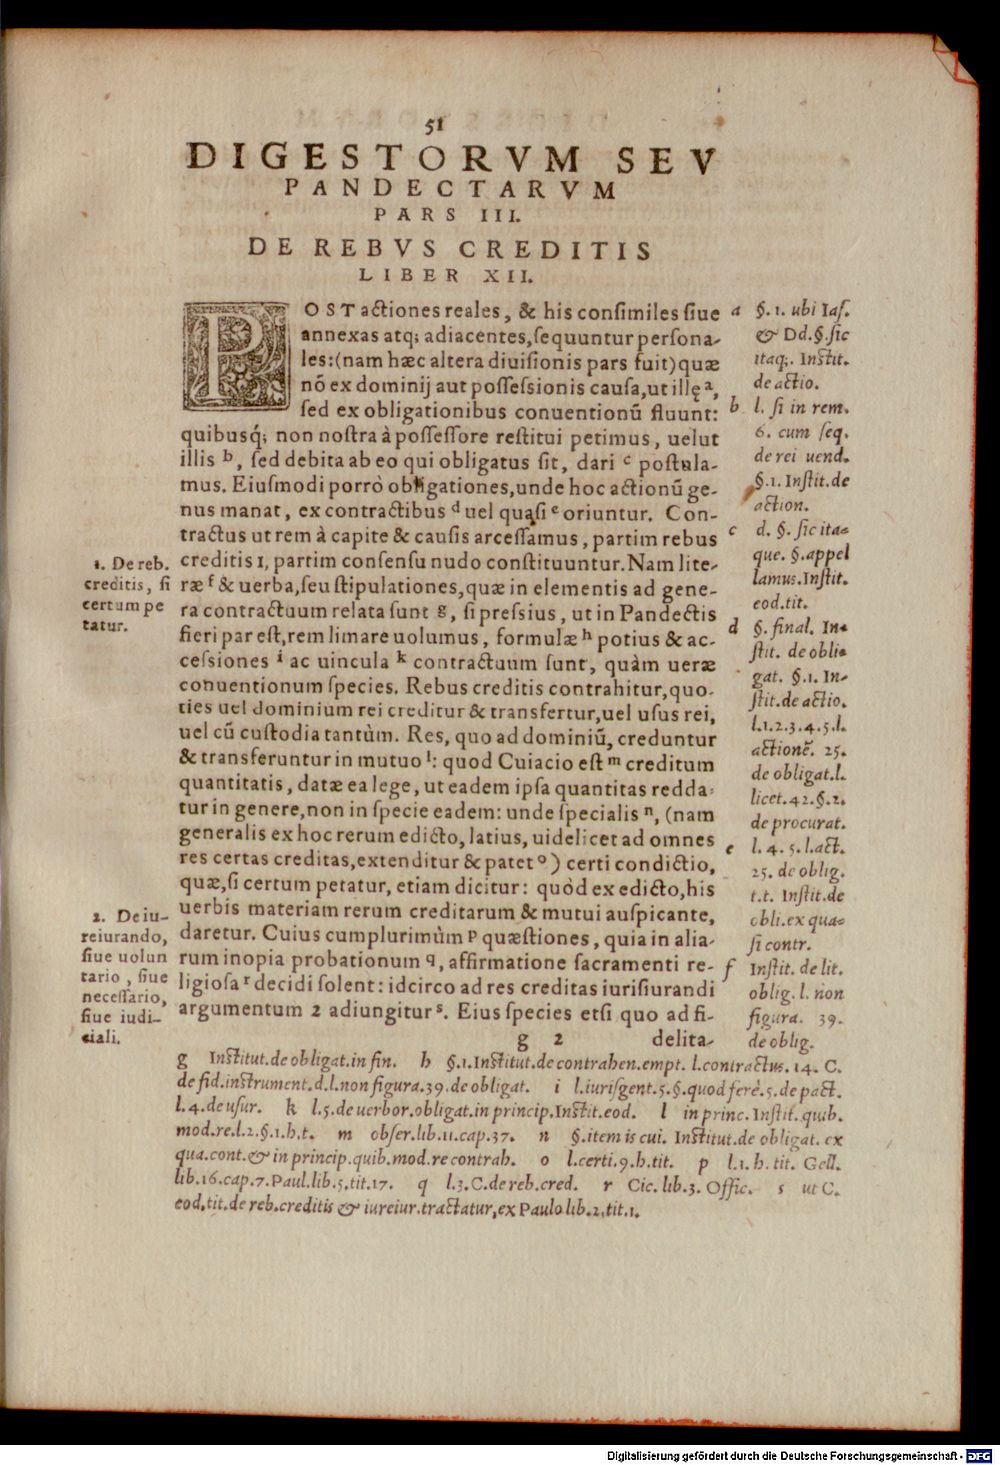 51
DIGESTORVM SEV
PANDECTARVM
PARS III.
DE REBVS CREDITIS
LIBER XII.
POST actiones reales, & his consimiles siue
annexas atq; adiacentes, sequuntur persona-
les: (nam hæc altera diuisionis pars fuit) quæ
nõ ex dominij aut possessionis causa, ut illę a,
sed ex obligationibus conuentionũ fluunt:
quibusq́; non nostra à possessore restitui petimus, uelut
illis b, sed debita ab eo qui obligatus sit, dari c postula-
mus. Eiusmodi porrò obligationes, unde hoc actionũ ge-
nus manat, ex contractibus d uel quasi e oriuntur. Con-
tractus ut rem à capite & causis arcessamus, partim rebus
creditis 1, partim consensu nudo constituuntur. Nam lite-
ræ f & uerba, seu stipulationes, quæ in elementis ad gene-
ra contractuum relata sunt g, si pressius, ut in Pandectis
fieri par est, rem limare uolumus, formulæ h potius & ac-
cessiones i ac uincula k contractuum sunt, quàm ueræ
conuentionum species. Rebus creditis contrahitur, quo-
ties uel dominium rei creditur & transfertur, uel usus rei,
uel cũ custodia tantùm. Res, quo ad dominiũ, creduntur
& transferuntur in mutuo l: quod Cuiacio est m creditum
quantitatis, datæ ea lege, ut eadem ipsa quantitas redda-
tur in genere, non in specie eadem: unde specialis n, (nam
generalis ex hoc rerum edicto, latius, uidelicet ad omnes
res certas creditas, extenditur & patet o) certi condictio,
quæ, si certum petatur, etiam dicitur: quòd ex edicto, his
uerbis materiam rerum creditarum & mutui auspicante,
daretur. Cuius cumplurimùm p quæstiones, quia in alia-
rum inopia probationum q, affirmatione sacramenti re-
ligiosa r decidi solent: idcirco ad res creditas iurisiurandi
argumentum 2 adiungitur s. Eius species etsi quo ad fi-
g 2 delita-
1. De reb.
creditis, si
certum pe
tatur.
2. De iu-
reiurando,
siue uolun
tario, siue
necessario,
siue iudi-
ciali.
a §. 1. ubi Ias.
& Dd. §. sic
itaq;. Instit.
de actio.
b l. si in rem.
6. cum seq.
de rei uend.
§. 1. Instit. de
action.
c d. §. sic ita-
que. §. appel
lamus. Instit.
eod. tit.
d §. final. In-
stit. de obli-
gat. §. 1. In-
stit. de actio.
l. 1. 2. 3. 4. 5. l.
actionẽ. 25.
de obligat. l.
licet. 42. §. 2.
de procurat.
e l. 4. 5. l. act.
25. de oblig.
t. t. Instit. de
obli. ex qua-
si contr.
f Instit. de lit.
oblig. l. non
figura. 39.
de oblig.
g Institut. de obligat. in fin. h §. 1. Institut. de contrahen. empt. l. contractus. 14. C.
de fid. instrument. d. l. non figura. 39. de obligat. i l. iurisgent. 5. §. quod ferè. 5. de pact.
l. 4. de usur. k l. 5. de uerbor. obligat. in princip. Instit. eod. l in princ. Instit. quib.
mod. re. l. 2. §. 1. h. t. m obser. lib. 11. cap. 37. n §. item is cui. Institut. de obligat. ex
qua. cont. & in princip. quib. mod. re contrah. o l. certi. 9. h. tit. p l. 1. h. tit. Gell.
lib. 16. cap. 7. Paul. lib. 5. tit. 17. q l. 3. C. de reb. cred. r Cic. lib. 3. Offic. s ut C.
eod. tit. de reb. creditis & iureiur. tractatur, ex Paulo lib. 2. tit. 1.
Digitalisierung gefördert durch die Deutsche Forschungsgemeinschaft - DFG